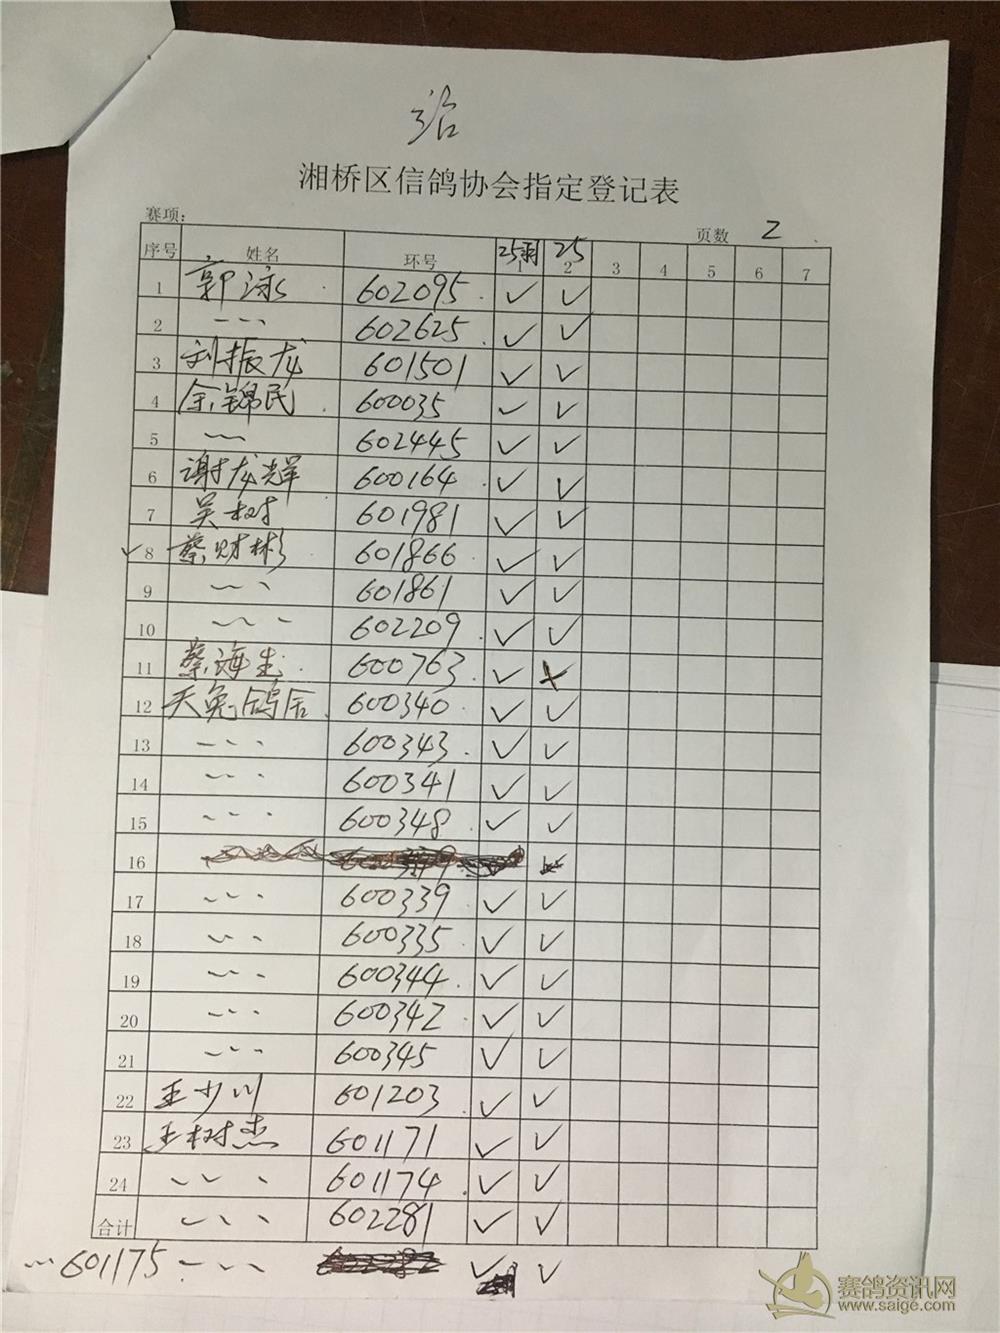 湘桥区信鸽协会指定登记表
赛项: 页数 2
序号 姓名 环号 25羽 1 25 2 3 4 5 6 7
1 郭泳 602095 ✓ ✓
2 ~ - - 602625 ✓ ✓
3 刘振龙 601501 ✓ ✓
4 余锦民 600035 ✓ ✓
5 ~~ 602445 ✓ ✓
6 谢龙辉 600164 ✓ ✓
7 吴树 601981 ✓ ✓
✓ 8 蔡财彬 601866 ✓ ✓
9 ~ - - 601861 ✓ ✓
10 ~ - - 602209 ✓ ✓
11 蔡海生 600763 ✓ ✗
12 天兔鸽舍 600340 ✓ ✓
13 - - - 600343 ✓ ✓
14 - - - 600341 ✓ ✓
15 - - - 600348 ✓ ✓
16
17 - - - 600339 ✓ ✓
18 - - - 600335 ✓ ✓
19 - - - 600344 ✓ ✓
20 - - - 600342 ✓ ✓
21 - - - 600345 ✓ ✓
22 王少川 601203 ✓ ✓
23 王树杰 601171 ✓ ✓
24 - - - 601174 ✓ ✓
合计 - - - 602281 ✓ ✓
... 601175 - - - ✓ ✓
赛鸽资讯网
www.saige.com